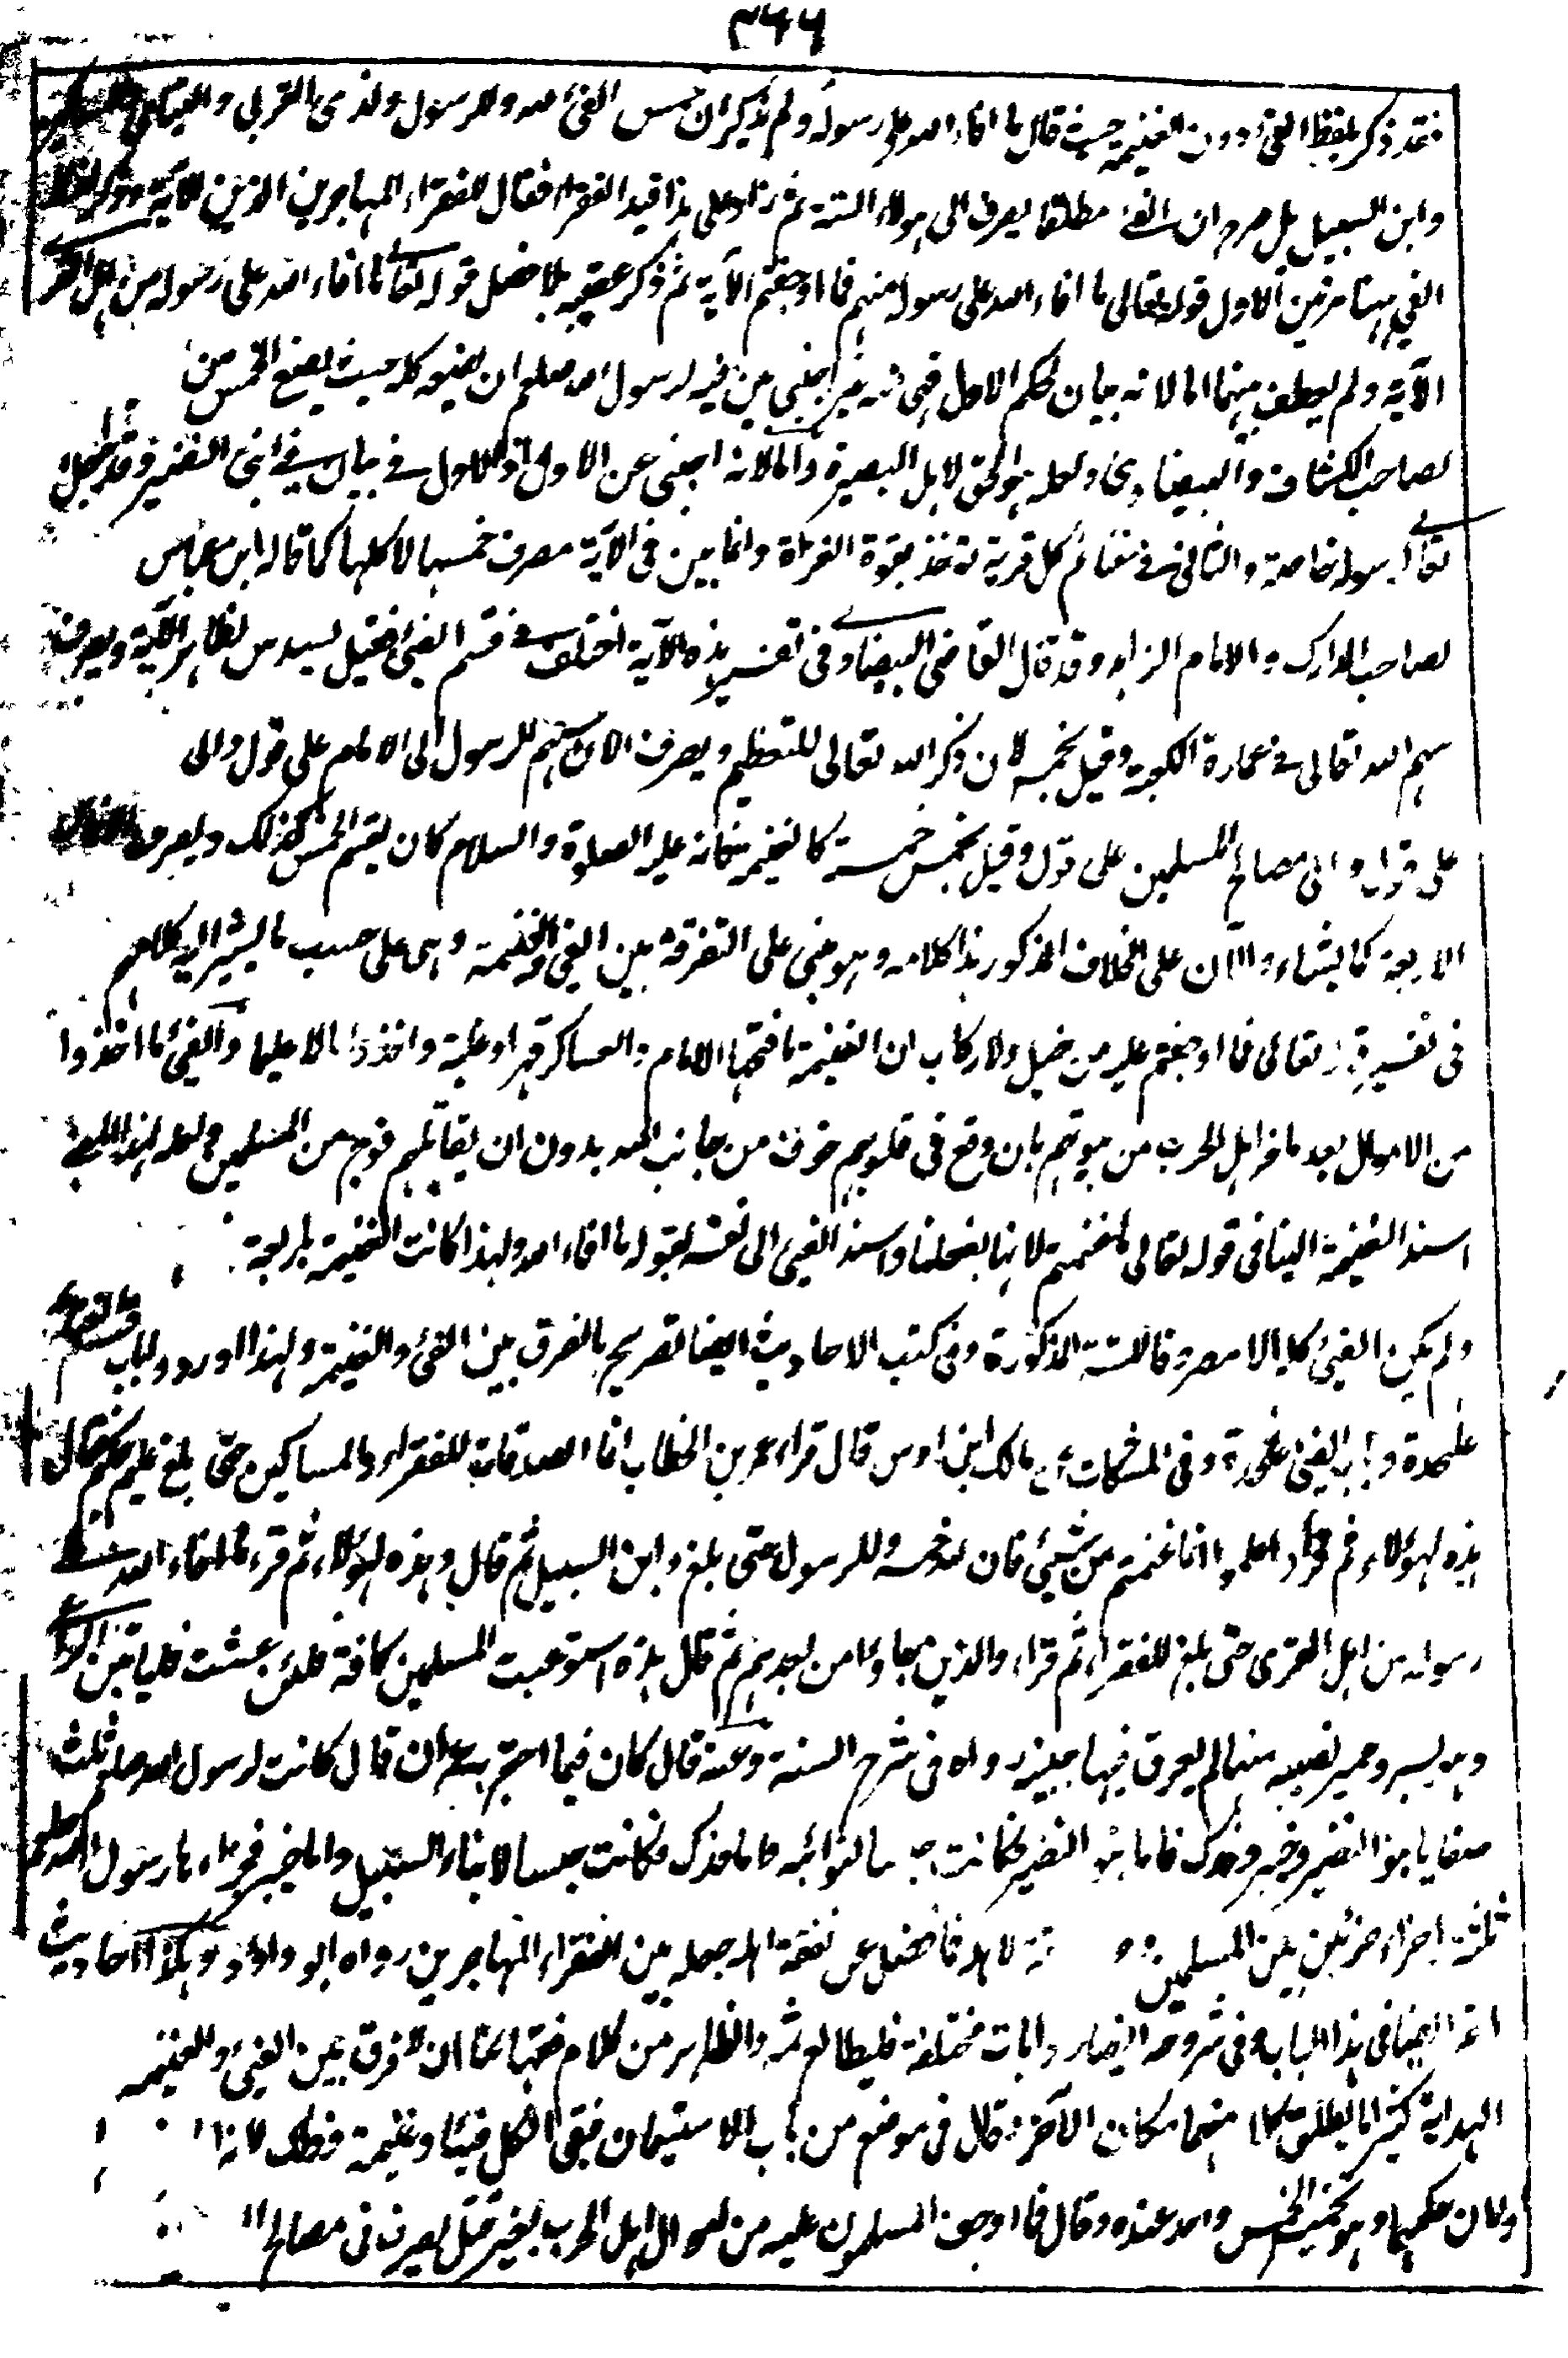 ٣٦٦
فقد ذكر بلفظ الفئ دون الغنيمة حيث قال ما افاء الله على رسوله ولم يذكر ان خمس الفئ لله وللرسول ولذى القربى واليتامى والمساكين
وابن السبيل بل صرح ان الفئ مطلقا يصرف الى هولاء الستة ثم زاد على هذا قيد الفقراء فقال للفقراء المهاجرين الذين الآية وذكر لفظ
الفئ ههنا مرتين الاول قوله تعالى ما افاء الله على رسوله منهم فما اوجفتم الآية ثم ذكر عقيبه بلا فصل قوله تعالى ما افاء الله على رسوله من اهل القرى
الآية ولم يعطف بينهما اما لانه بيان للحكم الاول فهى منه غير اجنبى بين فيه لرسول الله صلعم ان يضعه كله حيث يضع الخمس من
لصاحب الكشاف والبيضاوى ولعله هو الحق لاهل البصيرة واما لانه اجنبى عن الاول اذ الاول فى بيان فئ بنى النضير وقد جعل
تعالى لرسوله خاصة والثانى فى غنائم كل قرية تؤخذ بقوة الغزاة وانما بين فى الآية مصرف خمسها لا كلها كما قاله ابن عباس
لصاحب المدارك والامام الزاهد وقد قال القاضى البيضاوى فى تفسير هذه الآية اختلف فى قسم الفئ فقيل يسدس لظاهر الآية ويصرف
سهم الله تعالى فى عمارة الكعبة وقيل يخمس لان ذكر الله تعالى للتعظيم ويصرف الآن سهم للرسول الى الامام على قول والى
على قول والى مصالح المسلمين على قول وقيل يخمس خمسه كالغنيمة فانه عليه الصلوة والسلام كان يقسم الخمس كذلك ويصرف الاخماس
الاربعة كما يشاء والآن على الخلاف المذكور هذا كلامه وهو مبنى على التفرقة بين الفئ والغنيمة وهى على حسب ما يشير اليه كلامهم
فى تفسير قوله تعالى فما اوجفتم عليه من خيل ولا ركاب ان الغنيمة ما فتحها الامام والعساكر قهرا وغلبة واخذوا مالا عليها والفئ ما اخذوا
من الاموال بعد ما فر اهل الحرب من بيوتهم بان وقع فى قلوبهم خوف من جانب الله بدون ان يقاتلهم فوج من المسلمين ولعله لهذا المعنى
اسند الغنيمة الينا فى قوله تعالى ما غنمتم لانها بفعلنا واسند الفئ الى نفسه بقوله ما افاء الله ولهذا كانت الغنيمة باربعة
ولم يكن الفئ كله الا مصرفا للستة المذكورة وفى كتب الاحاديث ايضا تصريح بالفرق بين الفئ والغنيمة ولهذا اوردوا باب
علحدة وباب الفئ علحدة وفى المشكات عن مالك ابن اوس قال قرأ عمر بن الخطاب انما الصدقات للفقراء والمساكين حتى بلغ عليم حكيم فقال
هذه لهولاء ثم قرأ واعلموا انما غنمتم من شئ فان لله خمسه وللرسول حتى بلغ وابن السبيل ثم قال وهذه لهولاء ثم قرء ما افاء الله على
رسوله من اهل القرى حتى بلغ للفقراء ثم قرء والذين جاؤا من بعدهم ثم قال هذه استوعبت المسلمين كافة فلئن عشت فلياتين الراعى
وهو بسرو حمير نصيبه منها لم يعرق فيها جبينه رواه فى شرح السنة وعنه قال كان فيما احتج به عمر ان قال كانت لرسول الله صلعم ثلث
صفايا بنو النضير وخيبر وفدك فاما بنو النضير فكانت حبسا لنوائبه واما فدك فكانت حبسا لابناء السبيل واما خيبر فجزاءها رسول الله صلعم
ثلثة اجزاء جزئين بين المسلمين و نفقة لاهله فما فضل عن نفقة اهله جعله بين الفقراء المهاجرين رواه ابو داؤد وهكذا احاديث
اخر ايضا فى هذا الباب وفى شروحه ايضا روايات مختلفة فليطالع ثمه والظاهر من كلام فقهائنا ان لا فرق بين الفئ والغنيمة
الهداية كثيرا ما يطلق كلا منهما مكان الآخر وقال فى موضع من باب الاستيمان فبقى الكل فيئا وغنيمة وذلك لانه
ولان حكمهما وهو تخميس الخمس واحد عنده وقال فما اوجف المسلمون عليه من اموال اهل الحرب بغير قتل يصرف فى مصالح